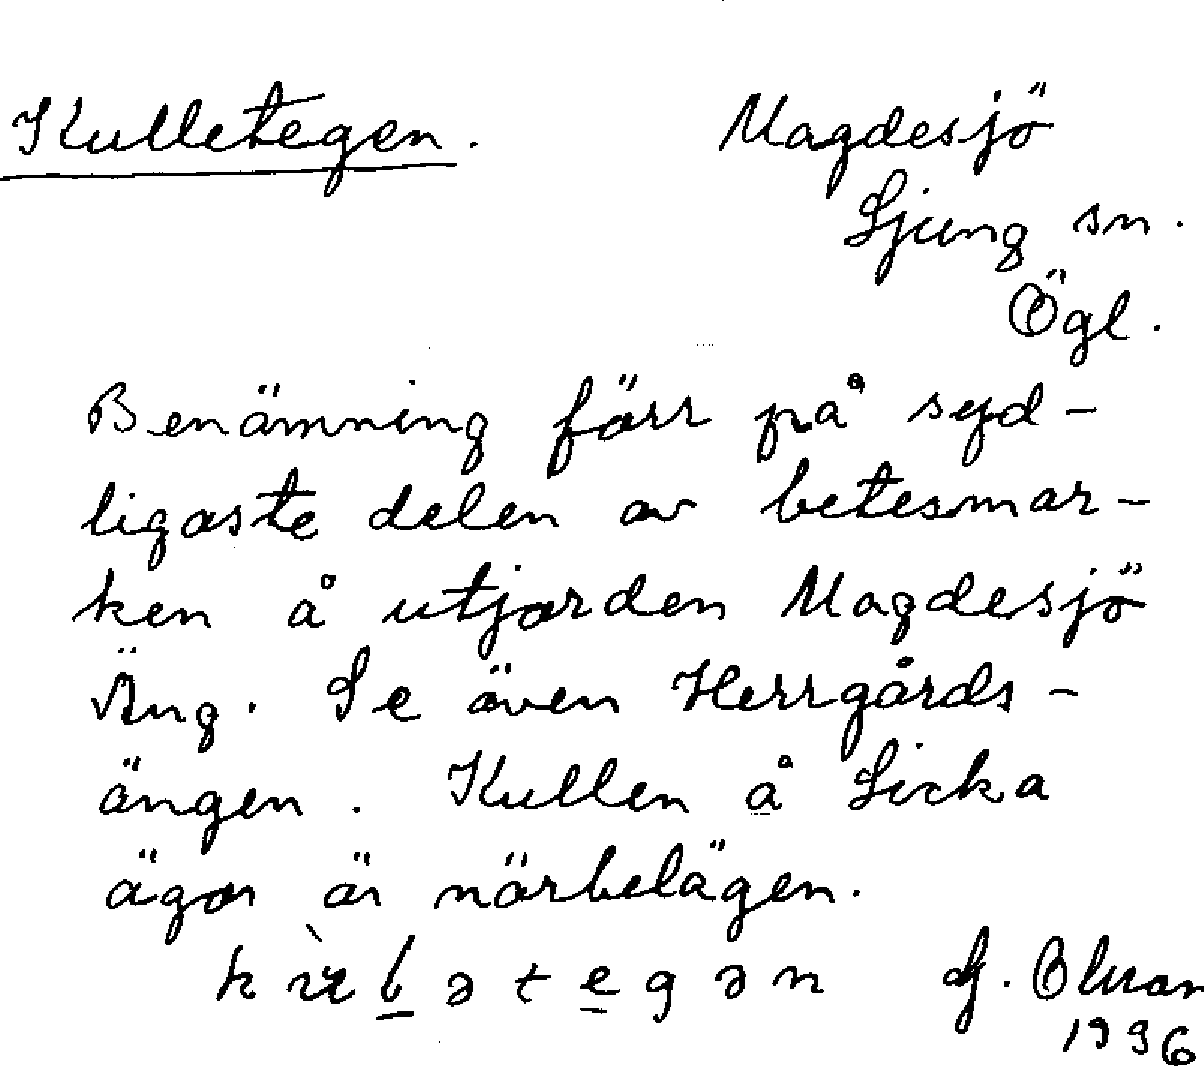 Kulletegen. Magdesjö
Ljung sn.
Ögl.
Benämning förr på syd-
ligaste delen av betesmar-
ken å utjorden Magdesjö
Äng. Se även Herrgårds-
ängen. Kullen å Licka
ägor är närbelägen.
G. Olsson
1936